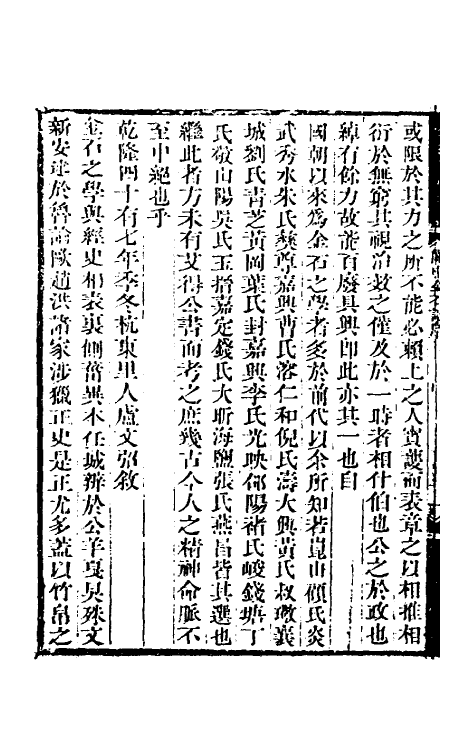 或限於其力之所不能必賴上之人寶護而表章之以相推相
衍於無窮其視治效之僅及於一時者相什伯也公之於政也
綽有餘力故能百廢具興即此亦其一也自
國朝以來為金石之學者多於前代以余所知若崑山顧氏炎
武秀水朱氏彝尊嘉興曹氏溶仁和倪氏濤大興黃氏叔璥襄
城劉氏青芝黃岡葉氏封嘉興李氏光映郃陽褚氏峻錢塘丁
氏敬山陽吳氏玉搢嘉定錢氏大昕海鹽張氏燕昌皆其選也
繼此者方未有艾得公書而考之庶幾古今人之精神命脈不
至中絕也乎
乾隆四十有七年季冬杭東里人盧文弨敘
金石之學與經史相表裏側菑異本任城辨於公羊戛臭殊文
新安述於魯論歐趙洪諸家涉獵正史是正尤多蓋以竹帛之